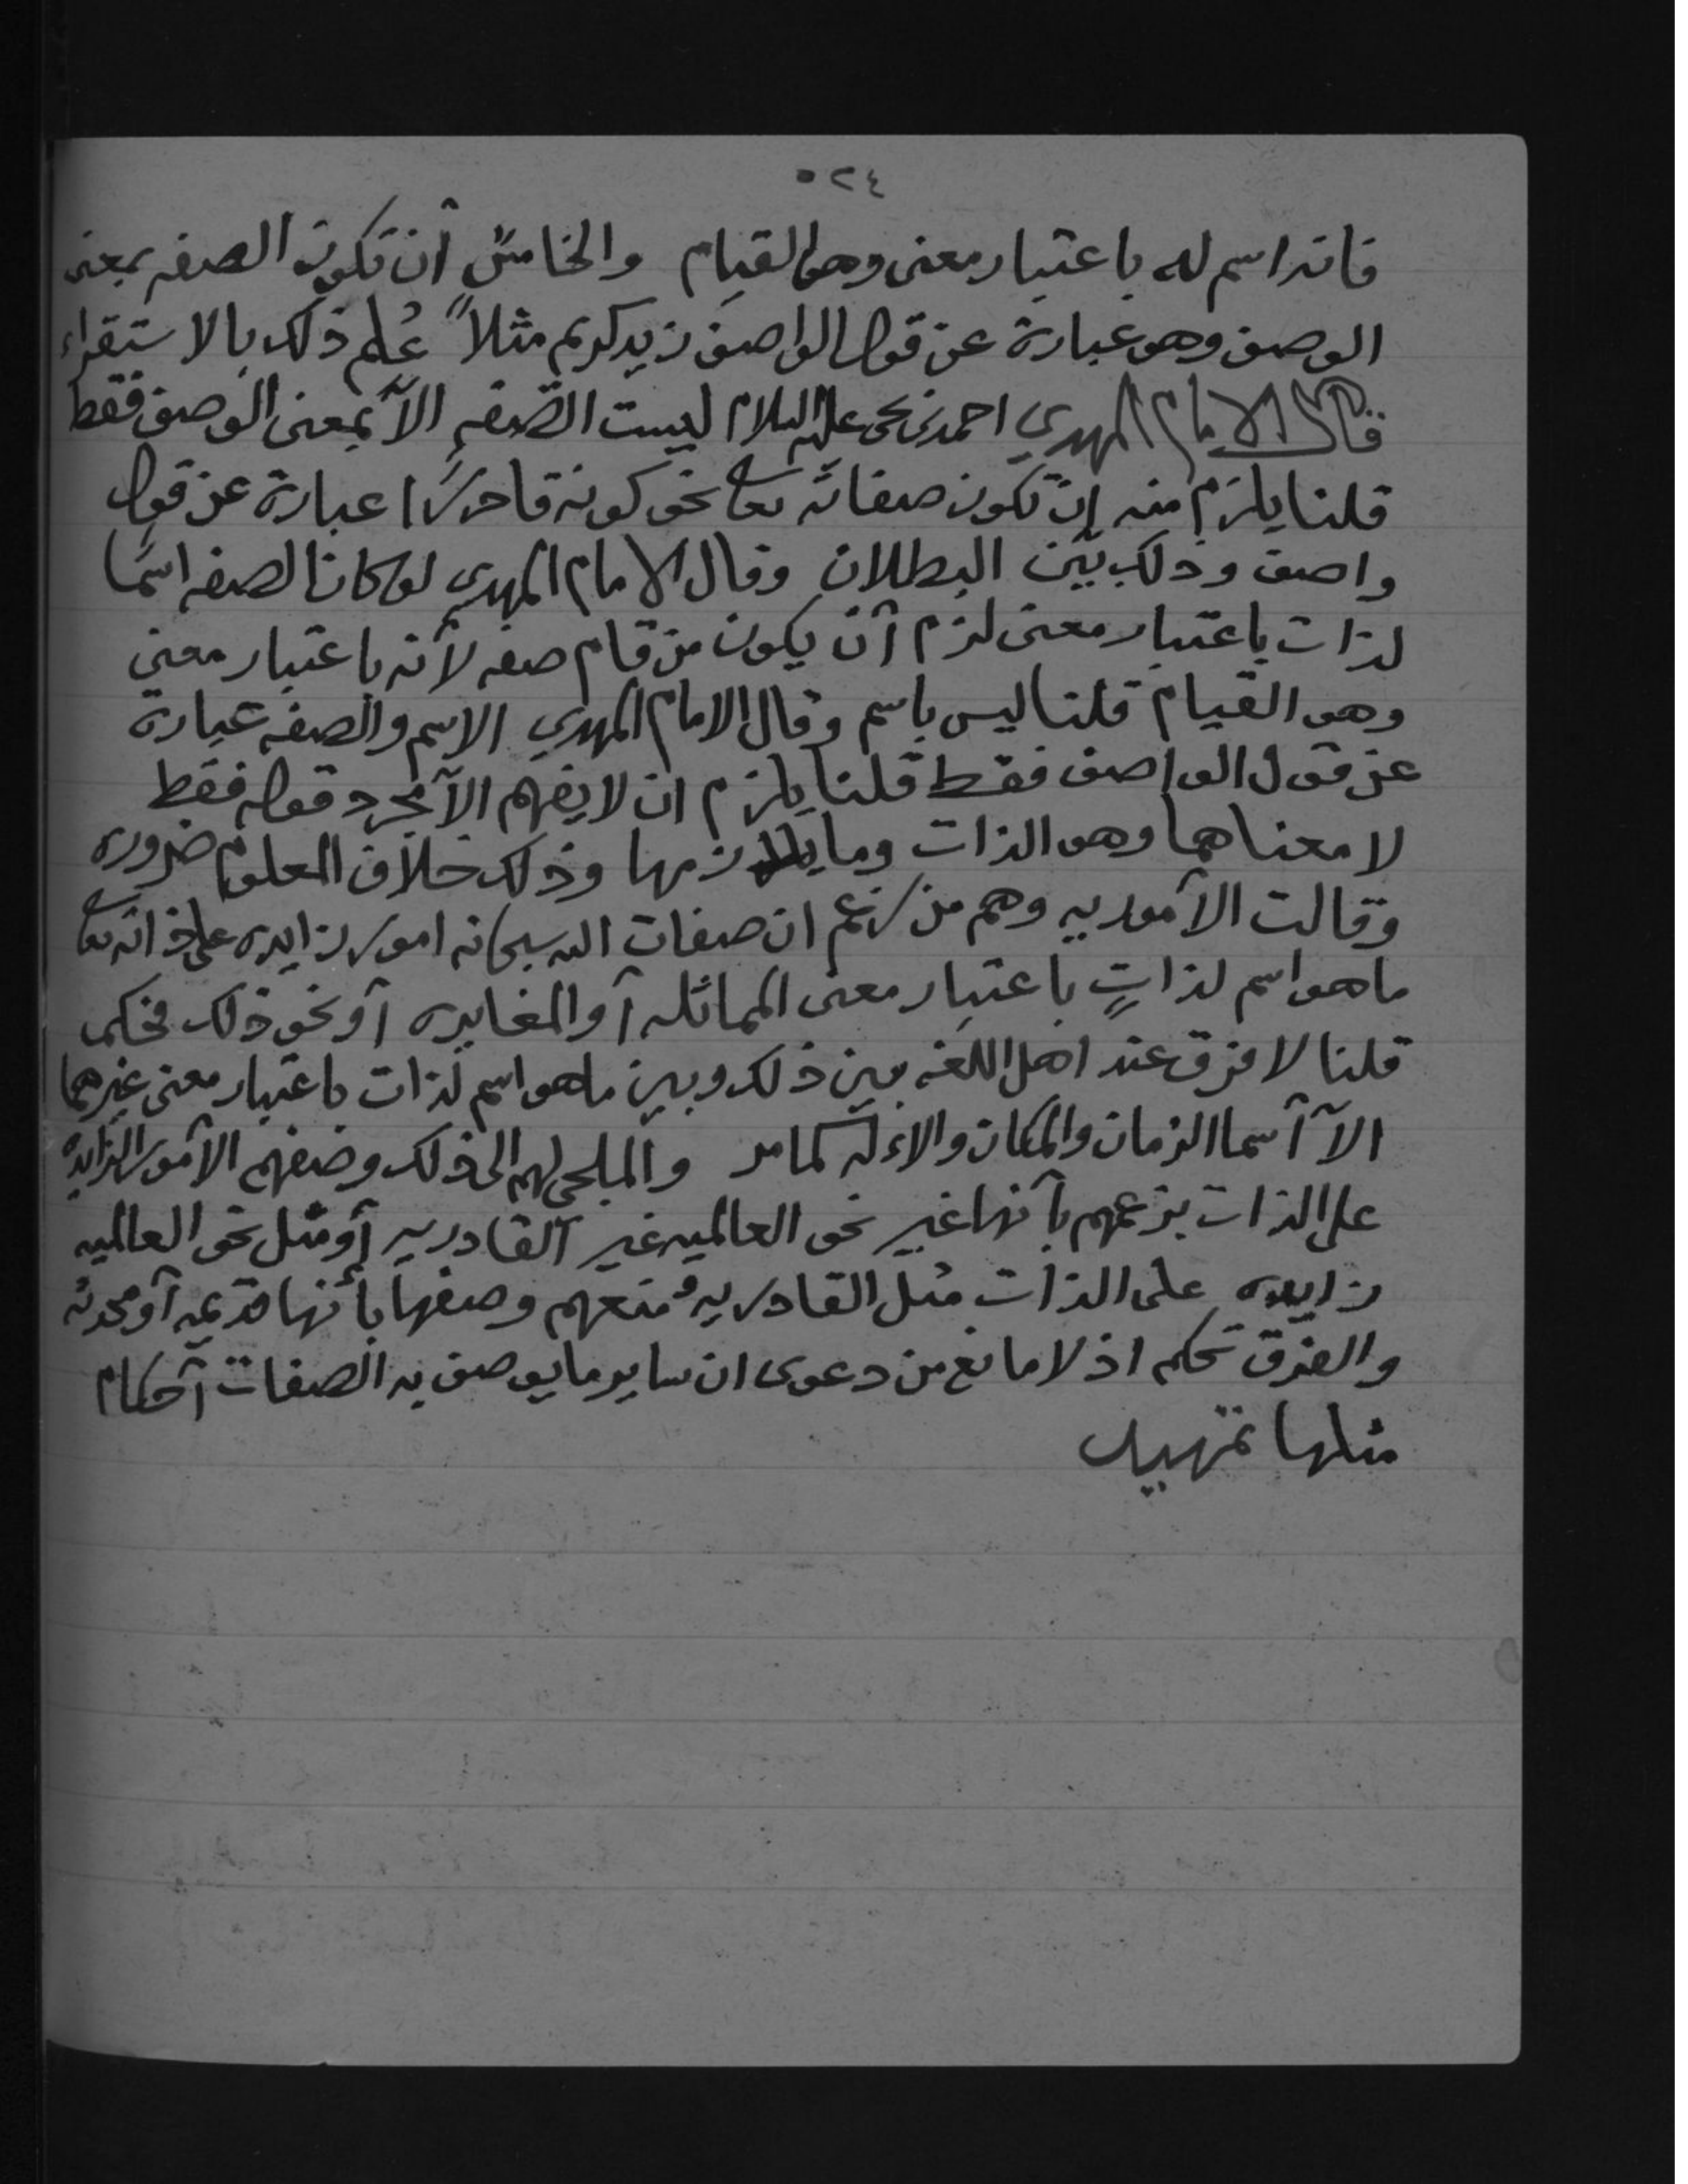 ٥٢٤
فانه اسم له باعتبار معنى وهو القيام والخامس أن تكون الصفه بمعنى
الوصف وهو عبارة عن قول الواصف زيد كريم مثلاً عُلم ذلك بالاستقراء
قال الامام المهدي احمد بن يحي عليه السلام ليست الصّفه الآ بمعنى الوصف فقط
قلنا يلزم منه انّ تكون صفاته تعا نحو كونه قادرًا عبارة عن قول
واصف وذلك بيّن البطلان وقال الامام المهدي لو كان الصفه اسمًا
لذات باعتبار معنى لزم آن يكون من قام صفه لأنه باعتبار معنى
وهو القيام قلنا ليس باسم وقال الامام المهدي الاسم والصفه عبارة
عن قول الواصف فقط قلنا يلزم ان لا يفهم الآ مجرد قوله فقط
لا معناهما وهو الذات وما يلازمها وذلك خلاف المعلوم ضروره
وقالت الآموريه وهم من زعم ان صفات الله سبحانه امور زايده على ذاته تعا
ماهو اسم لذاتٍ باعتبار معنى المماثله آو المغايره آو نحو ذلك فحكم
قلنا لا فرق عند اهل اللغه بين ذلك وبين ماهو اسم لذات باعتبار معنى غيرهما
الآ آسما الزمان والمكان والاءله كما مر والملجي لهم الى ذلك وصفهم الآمور الزايده
على الذات بزعمهم بآنها غير نحو العالميه غير القادريه آو مثل نحو العالميه
زايده على الذات مثل القادريه ومنعهم وصفها بأنها قديمه آو محدثه
والفرق تحكم اذ لا مانع من دعوى ان ساير ما يوصف به الصفات آحكام
مثلها تمهيد